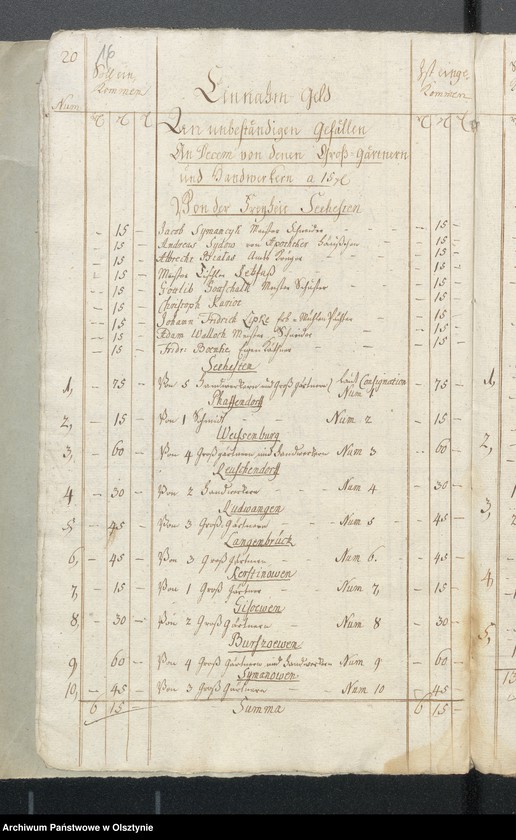 20 16
Soll ein Kommen
Einnahm Geld
Ist einge Kommen
Num
An unbeständigen Gefällen
An Decem von denen Groß-Gärtnern
und Handwerkern a 15
Von der Freyheit Seehesten
- 15 - Jacob Symanczyk Meister Schneider - 15 -
- 15 - Andreas Sydow - 15 -
- 15 - Albrecht Amts - 15 -
- 15 - Meister Tischler - 15 -
- 15 - Gottlieb Gottschalk Meister - 15 -
- 15 - Christoph - 15 -
- 15 - Johann Friedrich Lipke - 15 -
- 15 - Adam Wallock Meister - 15 -
- 15 - Friedr: - 15 -
Seehesten
1, - 75 - Von 5 Handwerkern und Groß gärtnern laut Consignation Num 1 - 75 -
Pfaffendorff
2, - 15 - Von 1 Schmidt Num 2 - 15 -
Weissenburg
3, - 60 - Von 4 Großgärtnern und Handwerkern Num 3 - 60 -
Reuschendorff
4 - 30 - Von 2 Handwerkern Num 4 - 30 -
Rudwangen
5, - 45 - Von 3 Groß Gärtnern Num 5 - 45 -
Langenbrück
6, - 45 - Von 3 Groß gärtnern Num 6. - 45 -
Kerstinowen
7, - 15 - Von 1 Groß Gärtner Num 7, - 15 -
Gisewen
8, - 30 - Von 2 Groß Gärtnern Num 8 - 30 -
Burszewen
9, - 60 - Von 4 Groß Gärtnern und Handwerkern Num 9 - 60 -
Symanowen
10, - 45 - Von 3 Groß Gärtnern Num 10 - 45 -
6 15 - Summa 6 15 -
1,
2,
3,
4,
5,
Archiwum Państwowe w Olsztynie
Archiwum Państwowe w Olsztynie